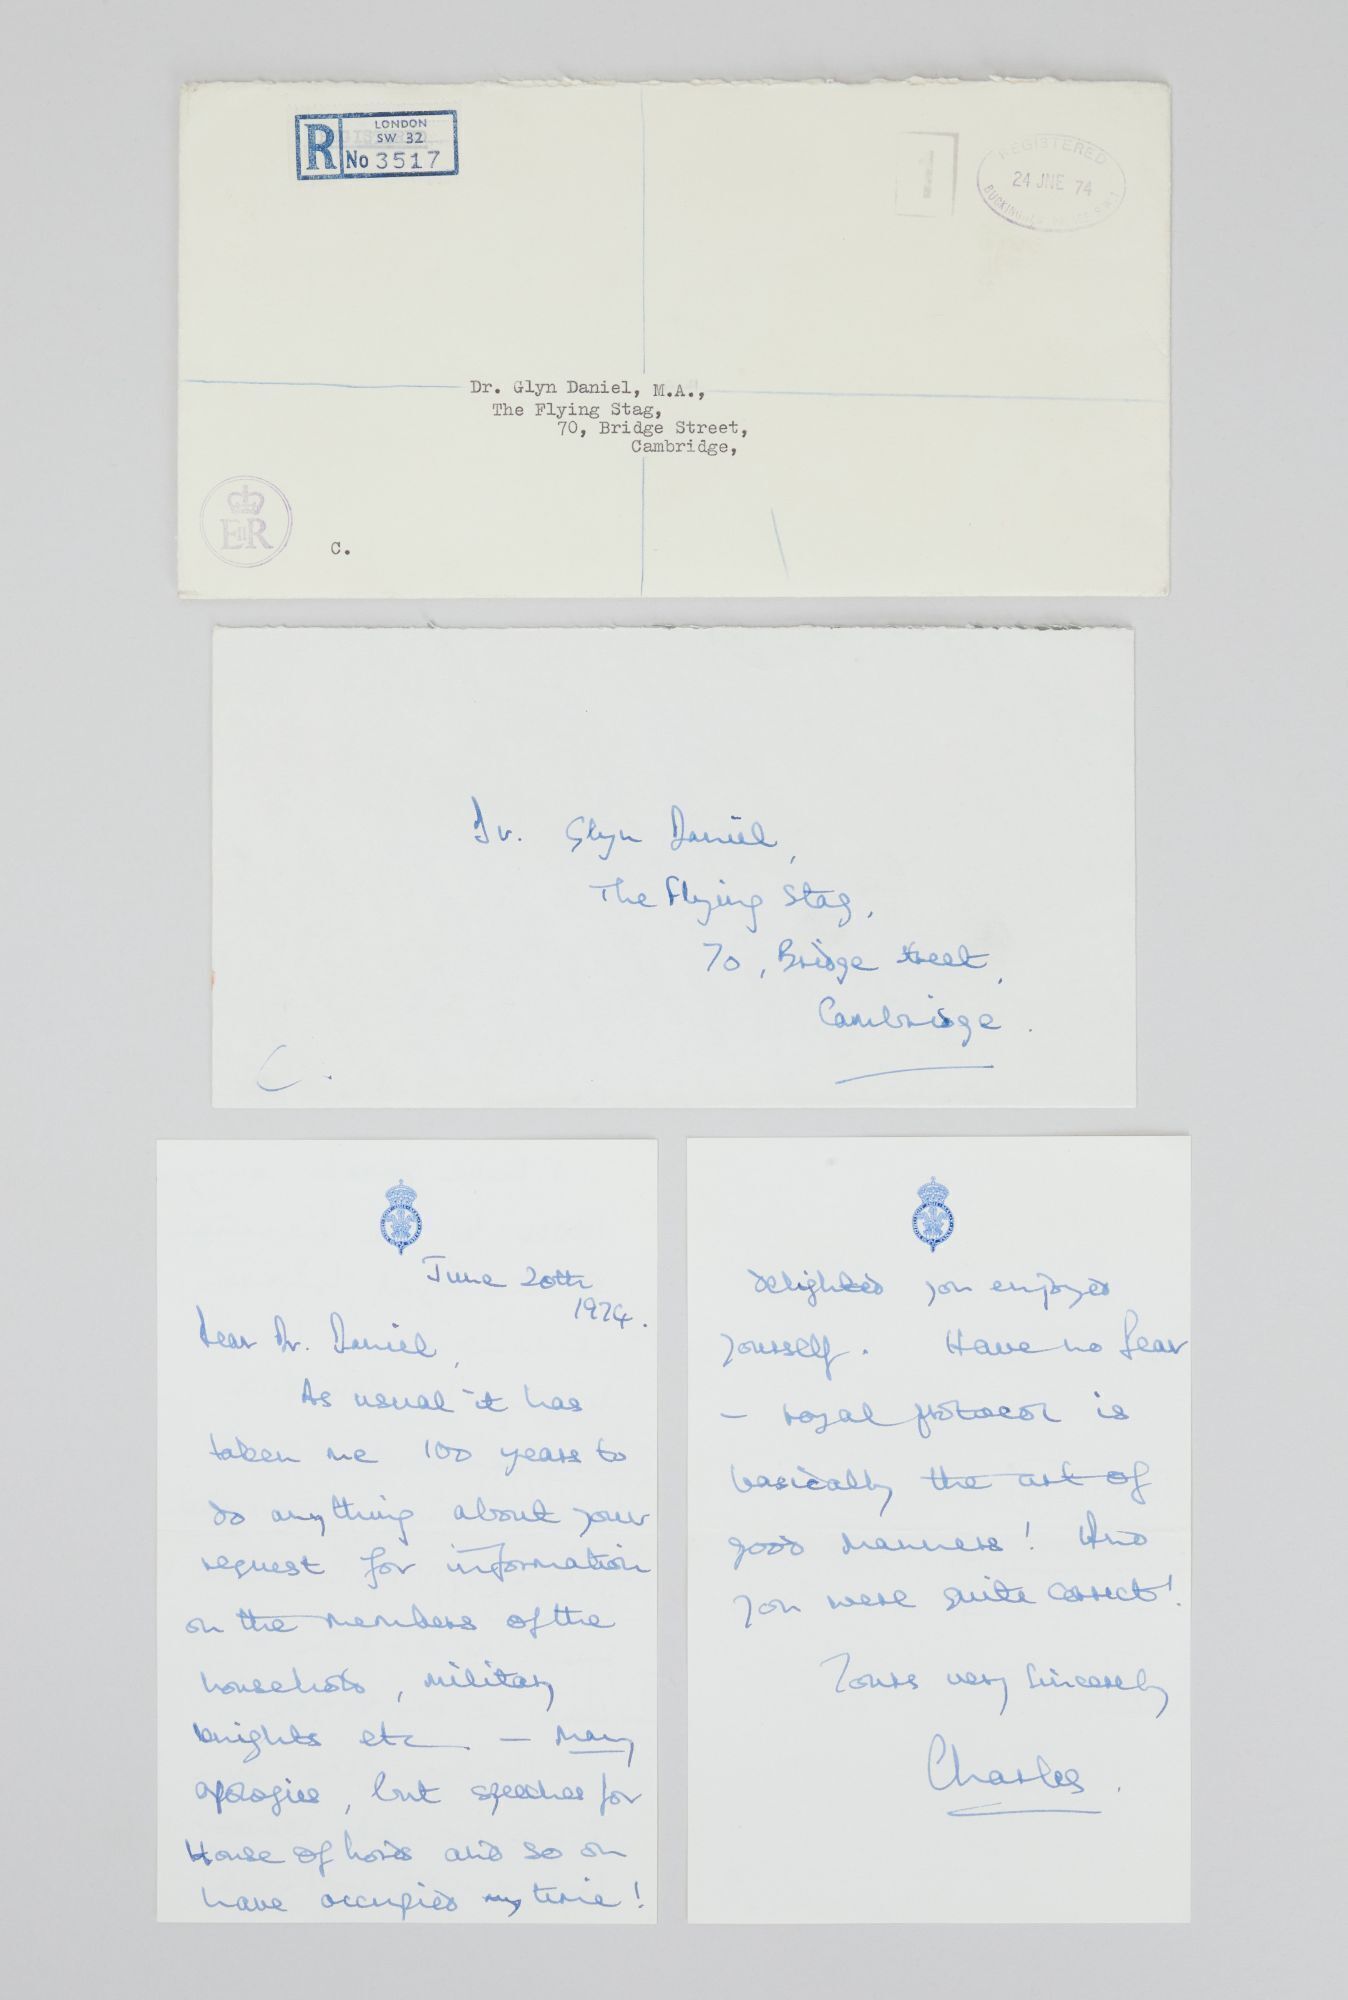 R
LONDON
SW 32
No 3517
REGISTERED
24 JNE 74
BUCKINGHAM PALACE S.W.1
Dr. Glyn Daniel, M.A.,
The Flying Stag,
70, Bridge Street,
Cambridge,
EIIR
C.
Dr. Glyn Daniel,
The Flying Stag,
70, Bridge Street,
Cambridge.
C.
June 20th
1974.
Dear Dr. Daniel,
As usual it has
taken me 100 years to
do anything about your
request for information
on the members of the
households, military
knights etc — many
apologies, but speeches for
House of Lords and so on
have occupied my time!
delighted you enjoyed
yourself. Have no fear
— royal protocol is
basically the art of
good manners! And
you were quite correct!
Yours very sincerely
Charles.